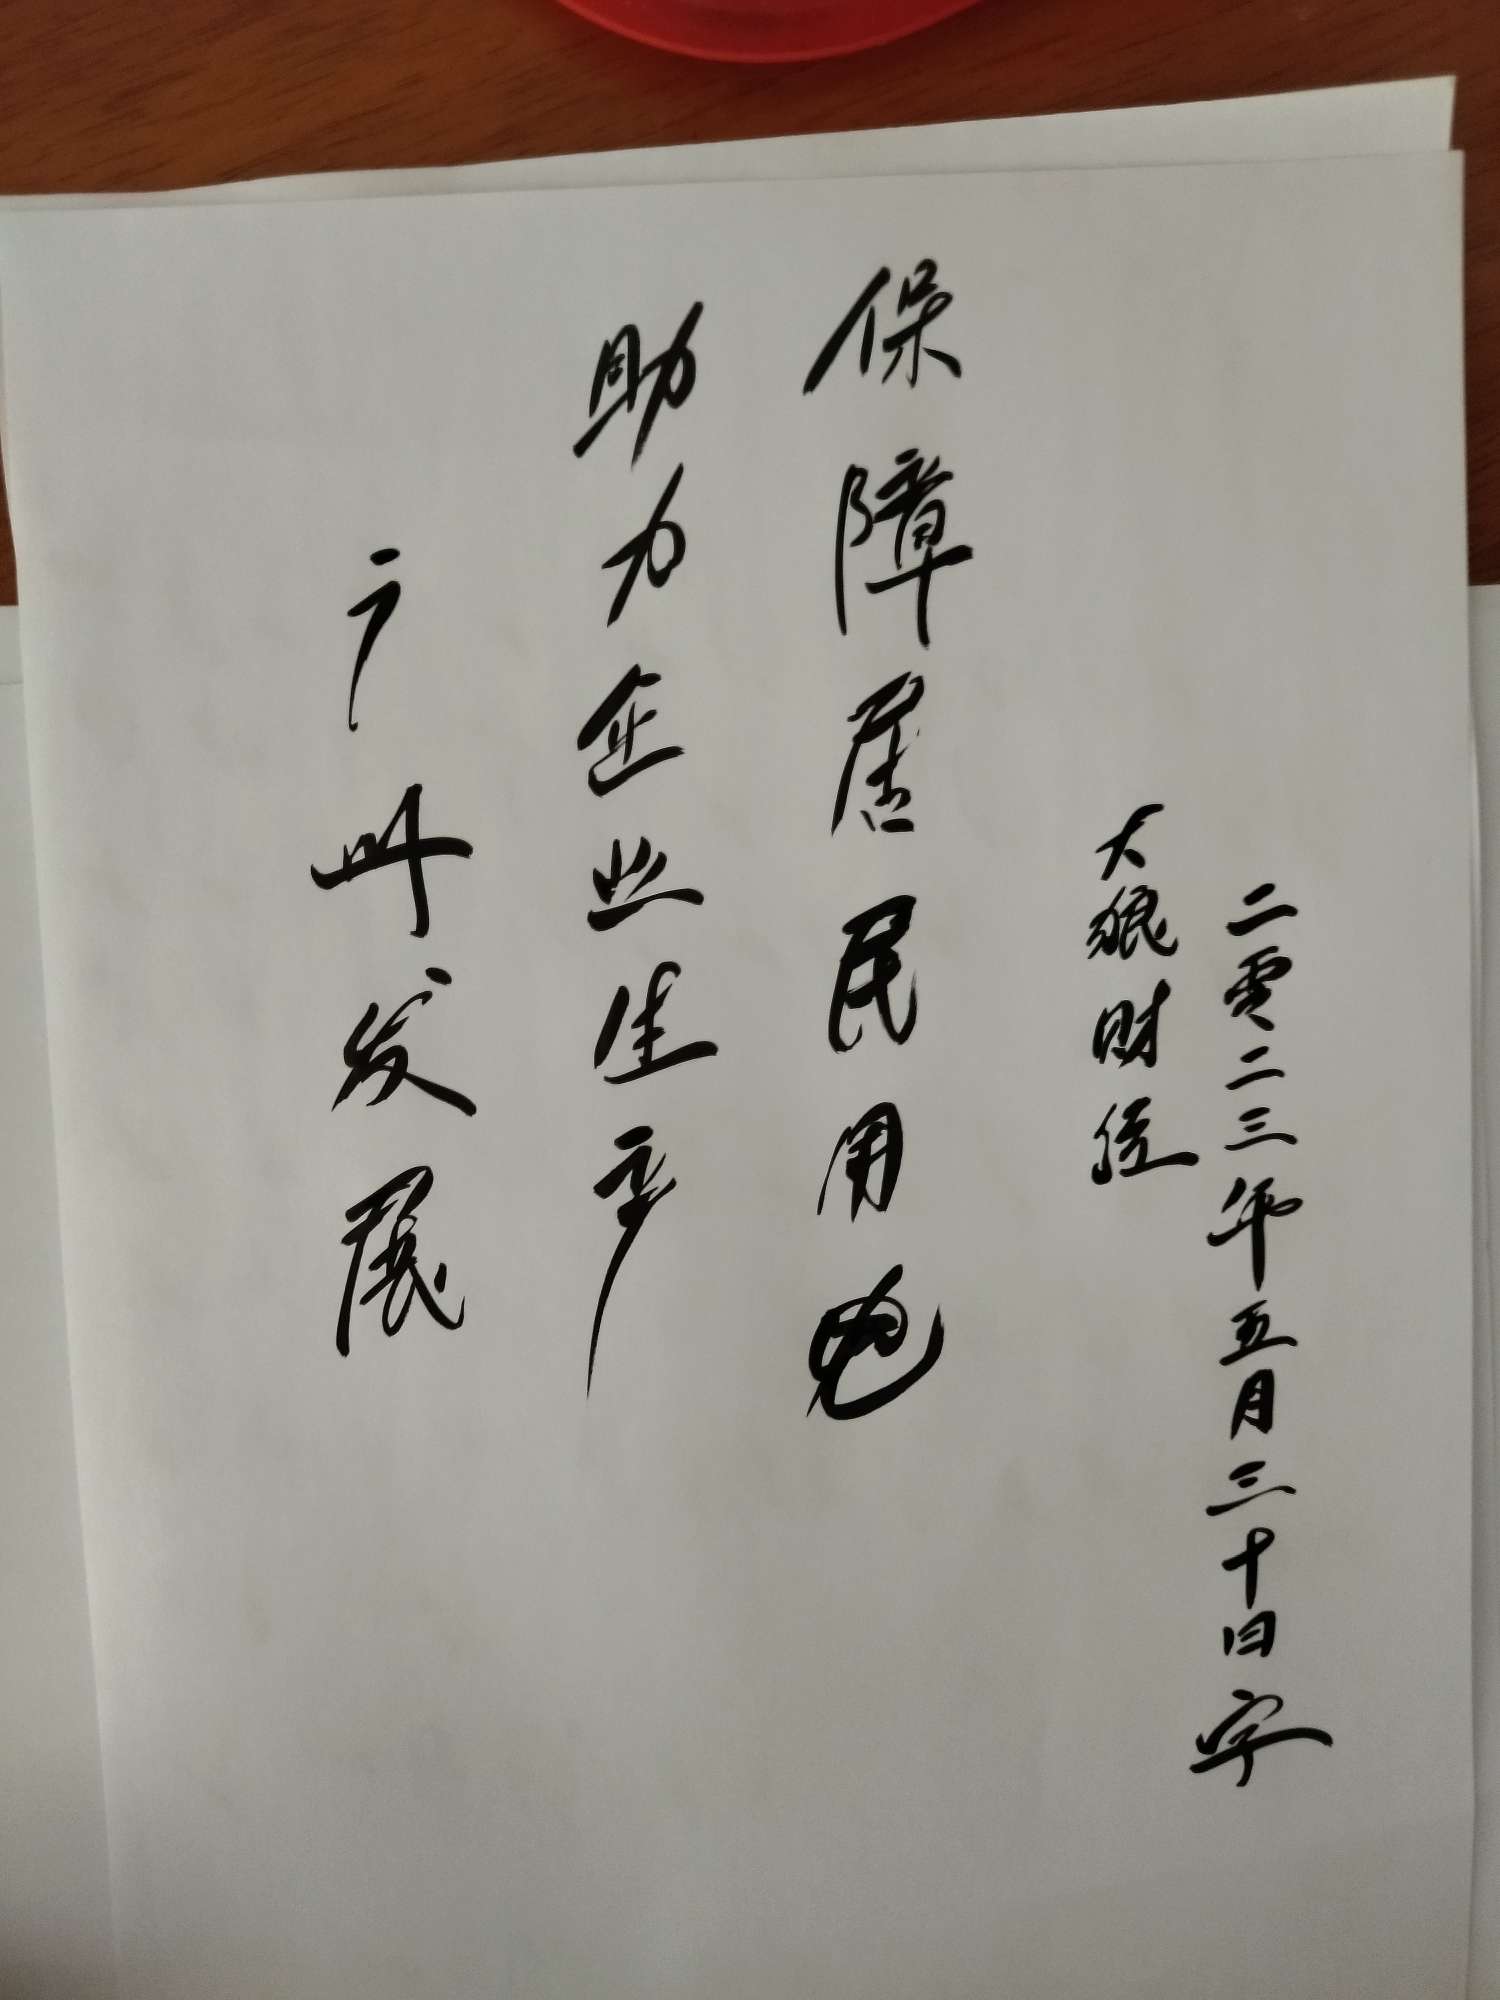 广州发展
助力企业生产
保障居民用电
大狼财经
二零二三年五月三十日字